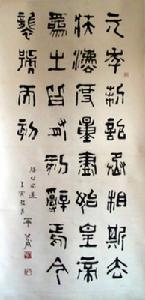 元年制詔丞相斯去
疾灋度量盡始皇帝
為之皆有刻辭焉今
襲號而刻